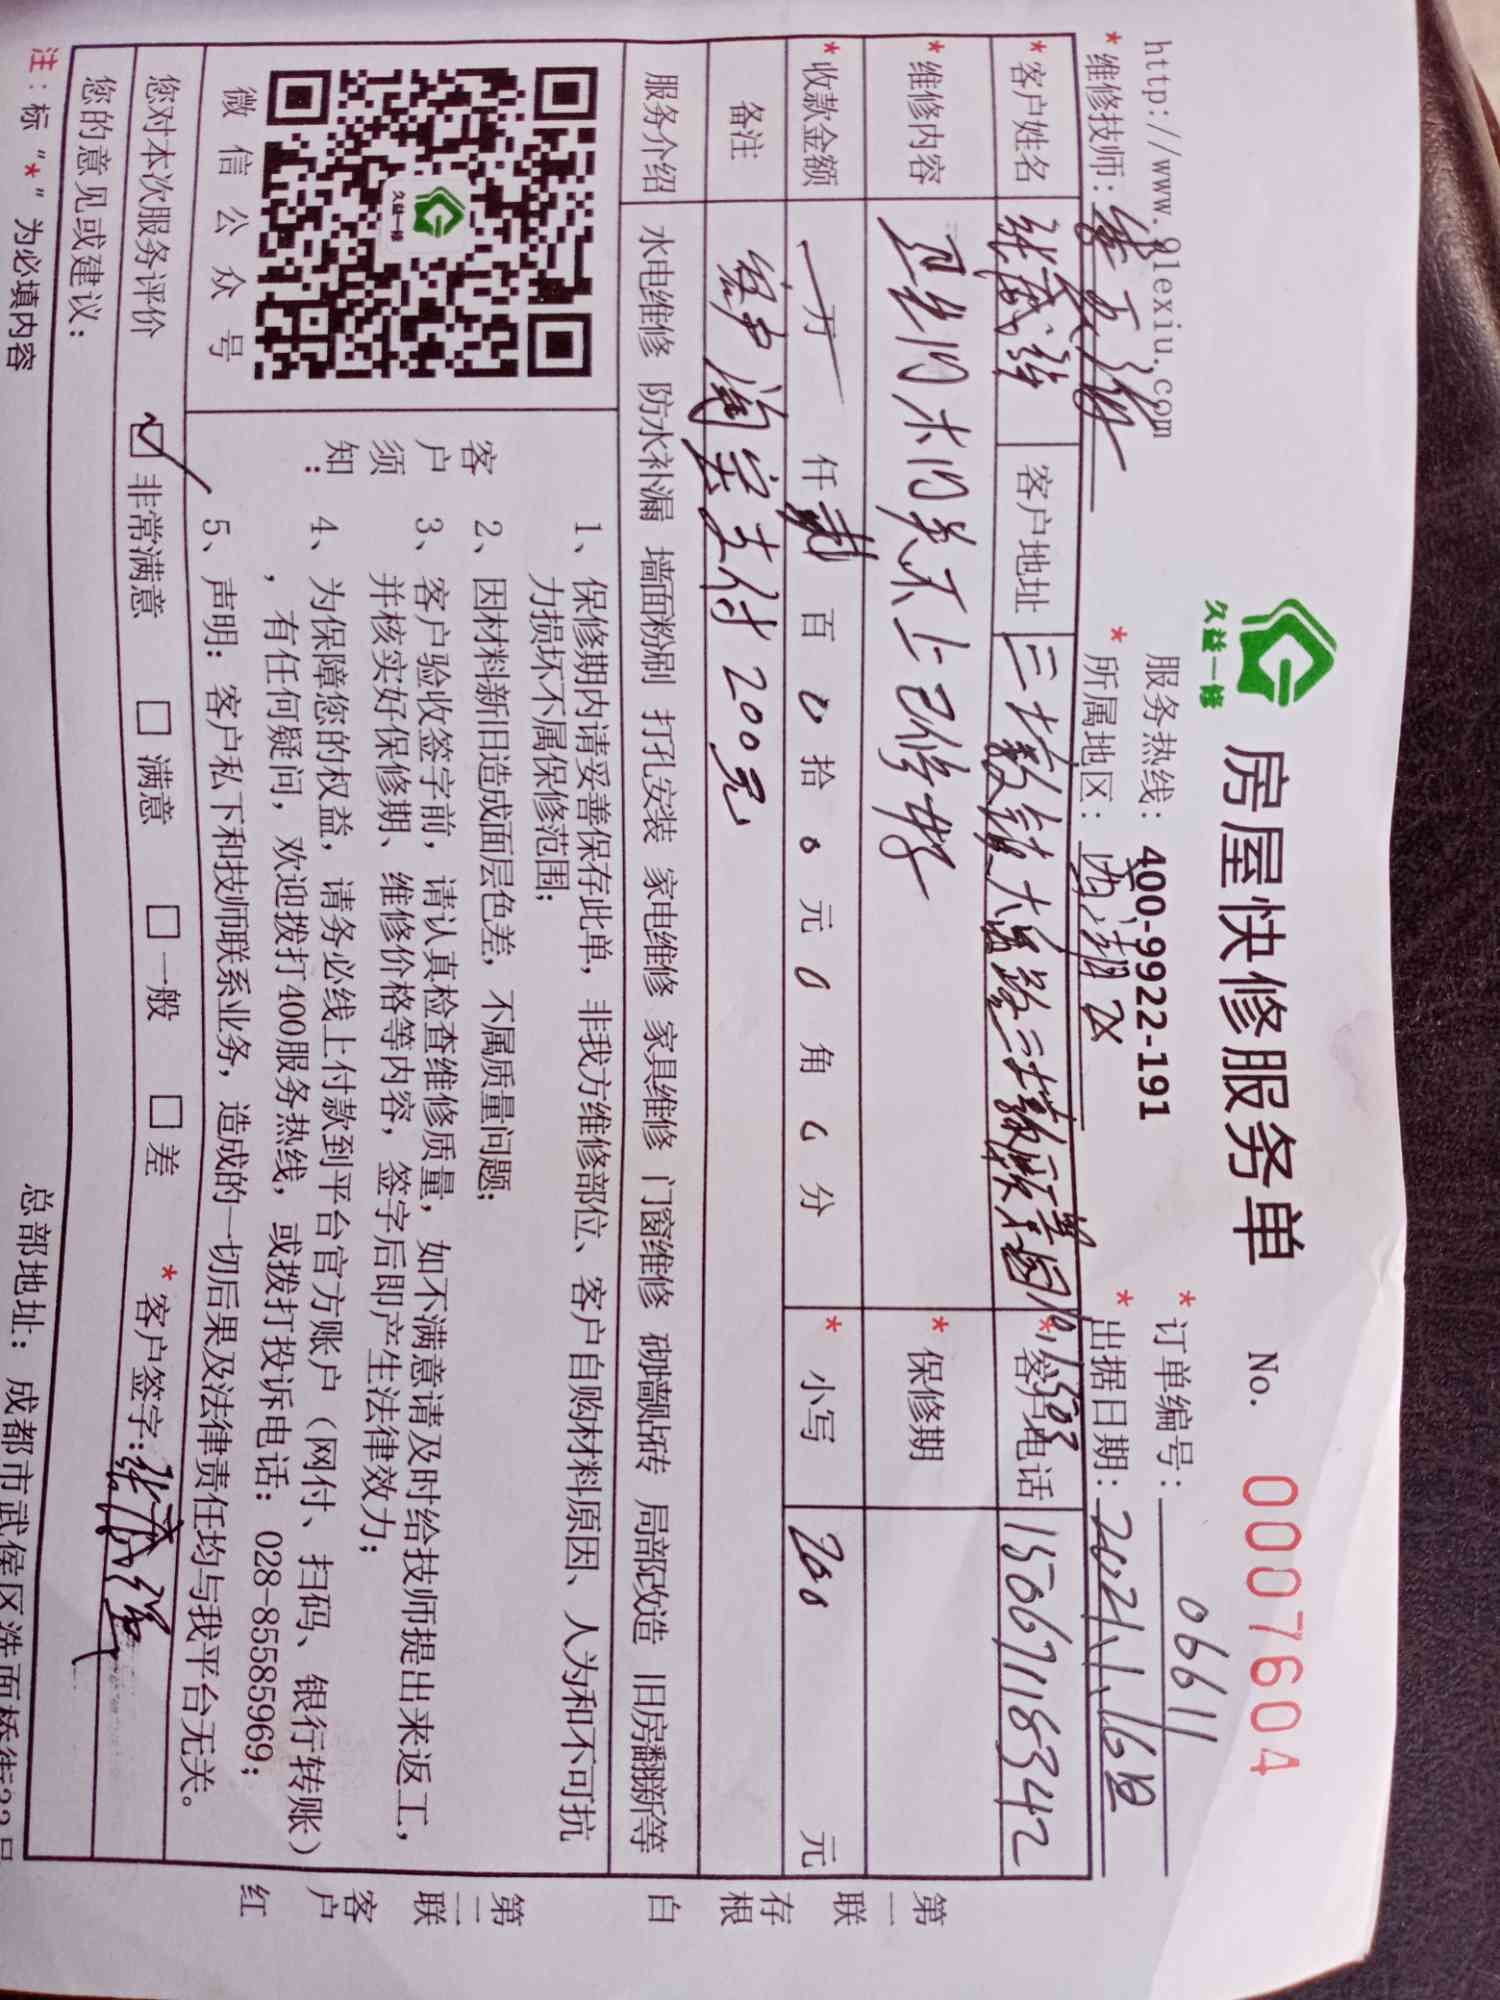 久益一修
房屋快修服务单 No. 0007604
http://www.91exiu.com 服务热线: 400-9922-191 *订单编号: 06611
*维修技师: *所属地区: *出据日期: 2021.1.16日
*客户姓名 客户地址 *客户电话 15067118342
*维修内容 卫生间水 关不上已修好 *保修期
*收款金额 万 仟 贰百0拾0元0角0分 *小写 200 元
备注 淘宝支付200元
服务介绍 水电维修 防水补漏 墙面粉刷 打孔安装 家电维修 家具维修 门窗维修 砌墙贴砖 局部改造 旧房翻新等
微信公众号
久益一修
客户须知:
1、保修期内请妥善保存此单，非我方维修部位、客户自购材料原因、人为和不可抗
力损坏不属保修范围;
2、因材料新旧造成面层色差，不属质量问题;
3、客户验收签字前，请认真检查维修质量，如不满意请及时给技师提出来返工，
并核实好保修期、维修价格等内容，签字后即产生法律效力;
4、为保障您的权益，请务必线上付款到平台官方账户（网付、扫码、银行转账）
，有任何疑问，欢迎拨打400服务热线，或拨打投诉电话: 028-85585969;
5、声明: 客户私下和技师联系业务，造成的一切后果及法律责任均与我平台无关。
您对本次服务评价 ☑非常满意 □满意 □一般 □差 *客户签字:
您的意见或建议:
注: 标“*”为必填内容 总部地址: 成都市武侯区洗面桥街33号
第一联 存根 白
第二联 客户 红